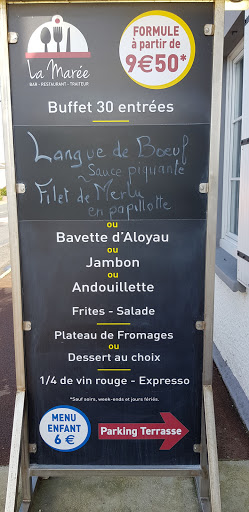 La Marée
BAR - RESTAURANT - TRAITEUR
FORMULE
à partir de
9€50*
Buffet 30 entrées
ou
Langue de Bœuf
Sauce piquante
Filet de Merlu
en papillotte
ou
Bavette d'Aloyau
ou
Jambon
ou
Andouillette
Frites - Salade
Plateau de Fromages
ou
Dessert au choix
1/4 de vin rouge - Expresso
*Sauf soirs, week-ends et jours fériés.
MENU
ENFANT
6 €
Parking Terrasse